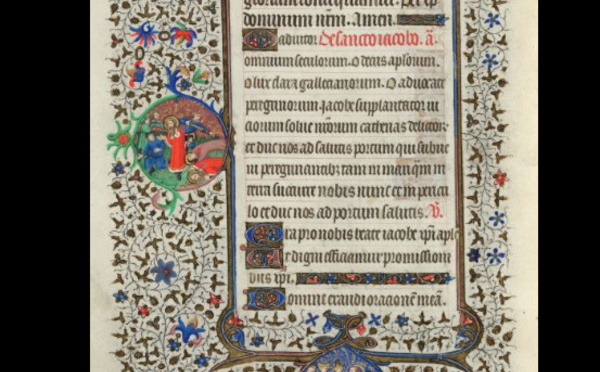 dominum nrm. Amen.
O adiutor De sancto iacobo. a.
omnium seculorum. O decus apostorum.
O lux clara galletianorum. O aduocate
peregrinorum. Jacobe supplantator ui
ciorum solue nrorum cathenas delictor
et duc nos ad salutis portum qui subue
nis peregrinantibz tam in mari qm in
terra succurre nobis nunc et in peri
lo et duc nos ad portum salutis. V.
Ora pro nobis beate iacobe xpi aple
Ut digni efficiamur promissioni
bus xpi.
Domine exaudi orationem mea.